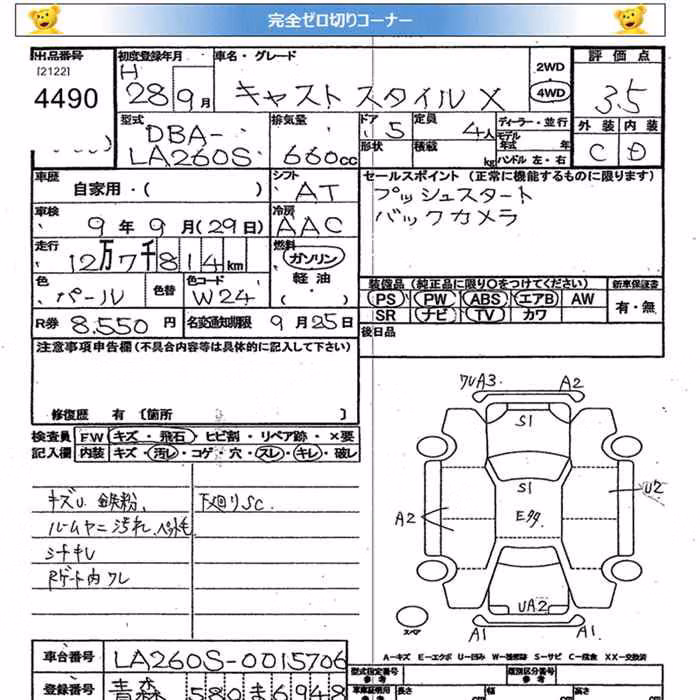 完全ゼロ切りコーナー
出品番号
[2122]
4490
初度登録年月
H
28年9月
車名・グレード
キャスト スタイル X
2WD
4WD
評価点
3.5
外装 内装
C D
型式
DBA-
LA260S
排気量
660cc
ドア 5
形状
定員 4人
積載 kg
ディーラー・並行
モデル年式 年
ハンドル 左・右
車歴
自家用・( )
シフト
AT
セールスポイント (正常に機能するものに限ります)
プッシュスタート
バックカメラ
車検
9年9月(29日)
冷房
AAC
走行
12万7千814km
燃料
ガソリン
軽油
・( )
色
パール
色替
色コード
W24
装備品 (純正品に限り○をつけてください)
新車保証書
PS PW ABS エアB AW
SR ナビ TV カワ
有・無
R券 8,550円
名変通知期限 9月25日
後日品
注意事項申告欄 (不具合内容等は具体的に記入して下さい)
修復歴 有 [箇所 ]
検査員
記入欄
FW キズ・飛石・ヒビ割・リペア跡・×要
内装 キズ・汚レ・コゲ・穴・スレ・キレ・破レ
キズU. 鉄粉.
下廻りSC.
ルームヤニ汚れ.ペット毛
シートキレ
Rゲート内ワレ
ワレA3
A2
S1
S1
Eタタ
A2
U2
UA2
A1
A1
スペア
A-キズ E-エクボ U-凹み W-補修跡 S-サビ C-腐食 XX-交換済
車台番号 LA260S-0015706
登録番号 青森 580 ま 6948
型式指定番号
参考
類別区分番号
参考
車庫証明用
(参考)
長さ cm
幅 cm
高さ cm